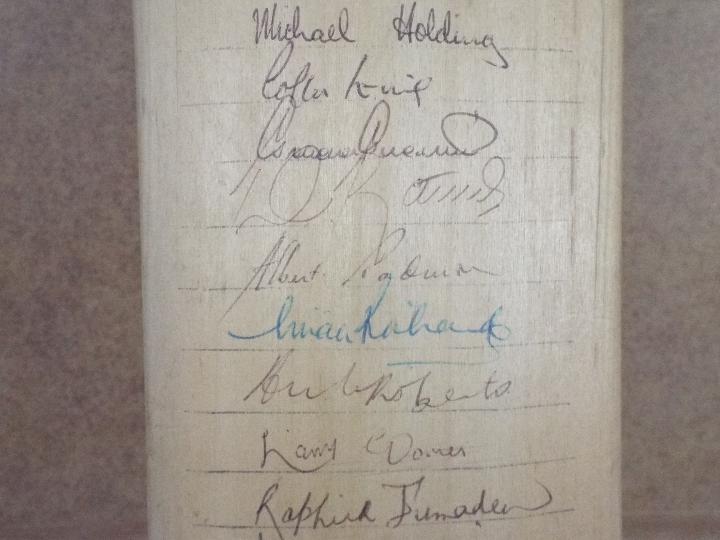 Michael Holding
Collis King
Albert Padmore
Vivian Richards
Andy Roberts
Larry Gomes
Raphick Jumadeen